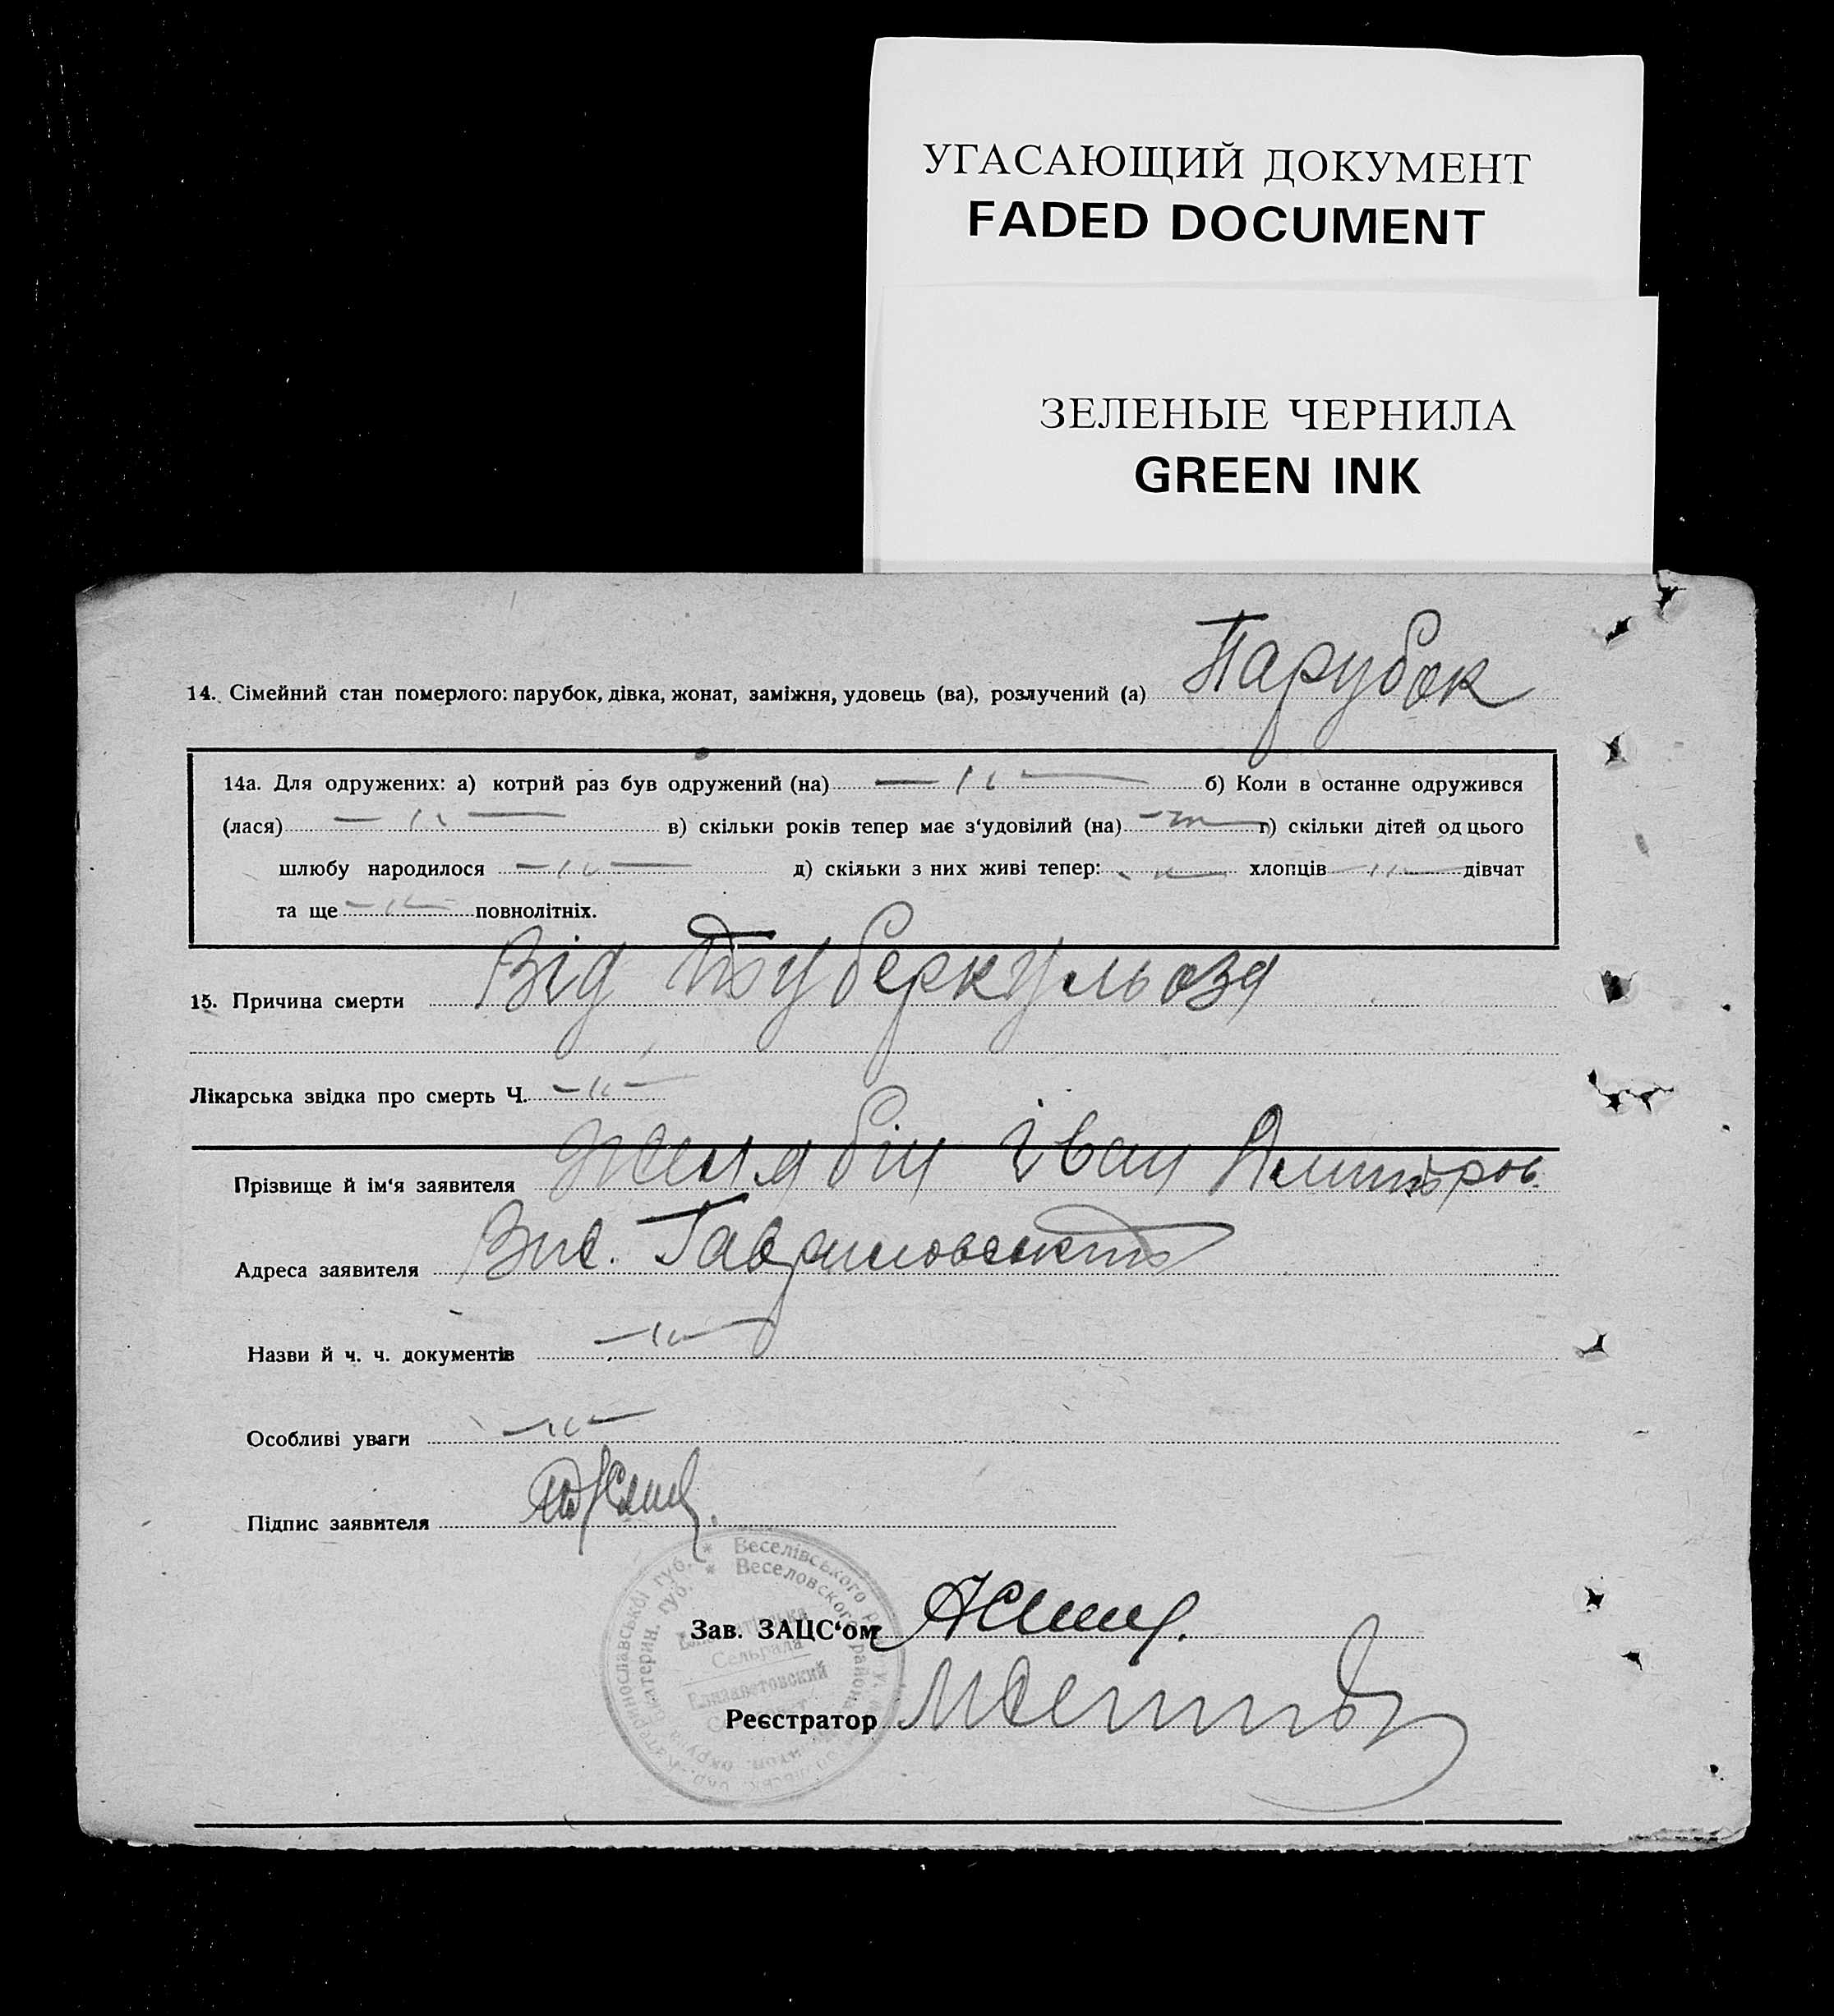 УГАСАЮЩИЙ ДОКУМЕНТ
FADED DOCUMENT
ЗЕЛЕНЫЕ ЧЕРНИЛА
GREEN INK
14. Сімейний стан померлого: парубок, дівка, жонат, заміжня, удовець (ва), розлучений (а) Парубок
14а. Для одружених: а) котрий раз був одружений (на) — " — б) Коли в останне одружився
(лася) — " — в) скільки років тепер має з'удовілий (на) г) скільки дітей од цього
шлюбу народилося — " — д) скільки з них живі тепер: — " — хлопців — " — дівчат
та ще — " — повнолітніх.
15. Причина смерти Від туберкульоза
Лікарська звідка про смерть Ч. — " —
Прізвище й ім'я заявителя Желябін Іван
Адреса заявителя Вис.
Назви й ч. ч. документів — " —
Особливі уваги — " —
Підпис заявителя
* Веселівського
* Веселовского района
Сельрада
Елизаветовский
Зав. ЗАЦС'ом
Реєстратор